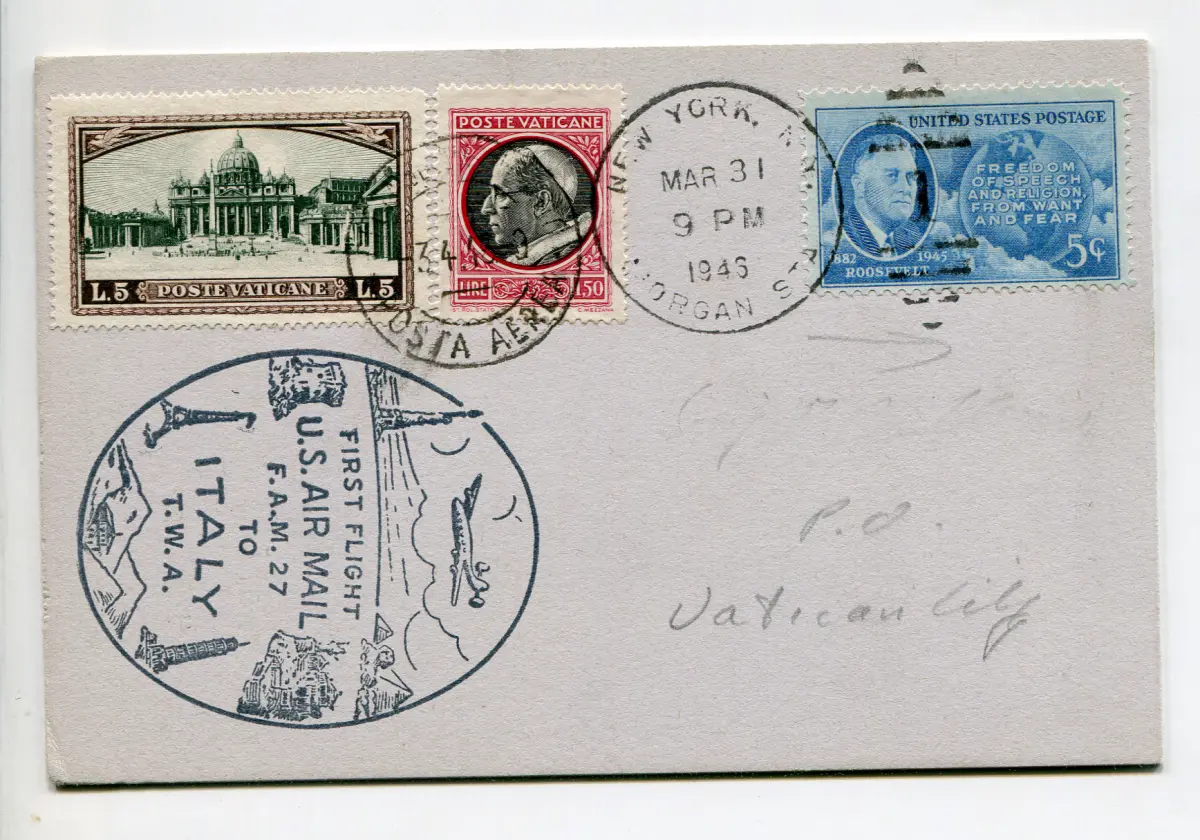 L.5 POSTE VATICANE L.5
POSTE VATICANE
LIRE 1.50
C. MEZZANA
POSTA AEREA
NEW YORK, N.Y.
MAR 31
9 PM
1946
MORGAN
UNITED STATES POSTAGE
FREEDOM
OF SPEECH
AND RELIGION,
FROM WANT
AND FEAR
1882 1945
ROOSEVELT
5¢
FIRST FLIGHT
U.S. AIR MAIL
F.A.M. 27
TO
ITALY
T.W.A.
P.O.
Vatican City